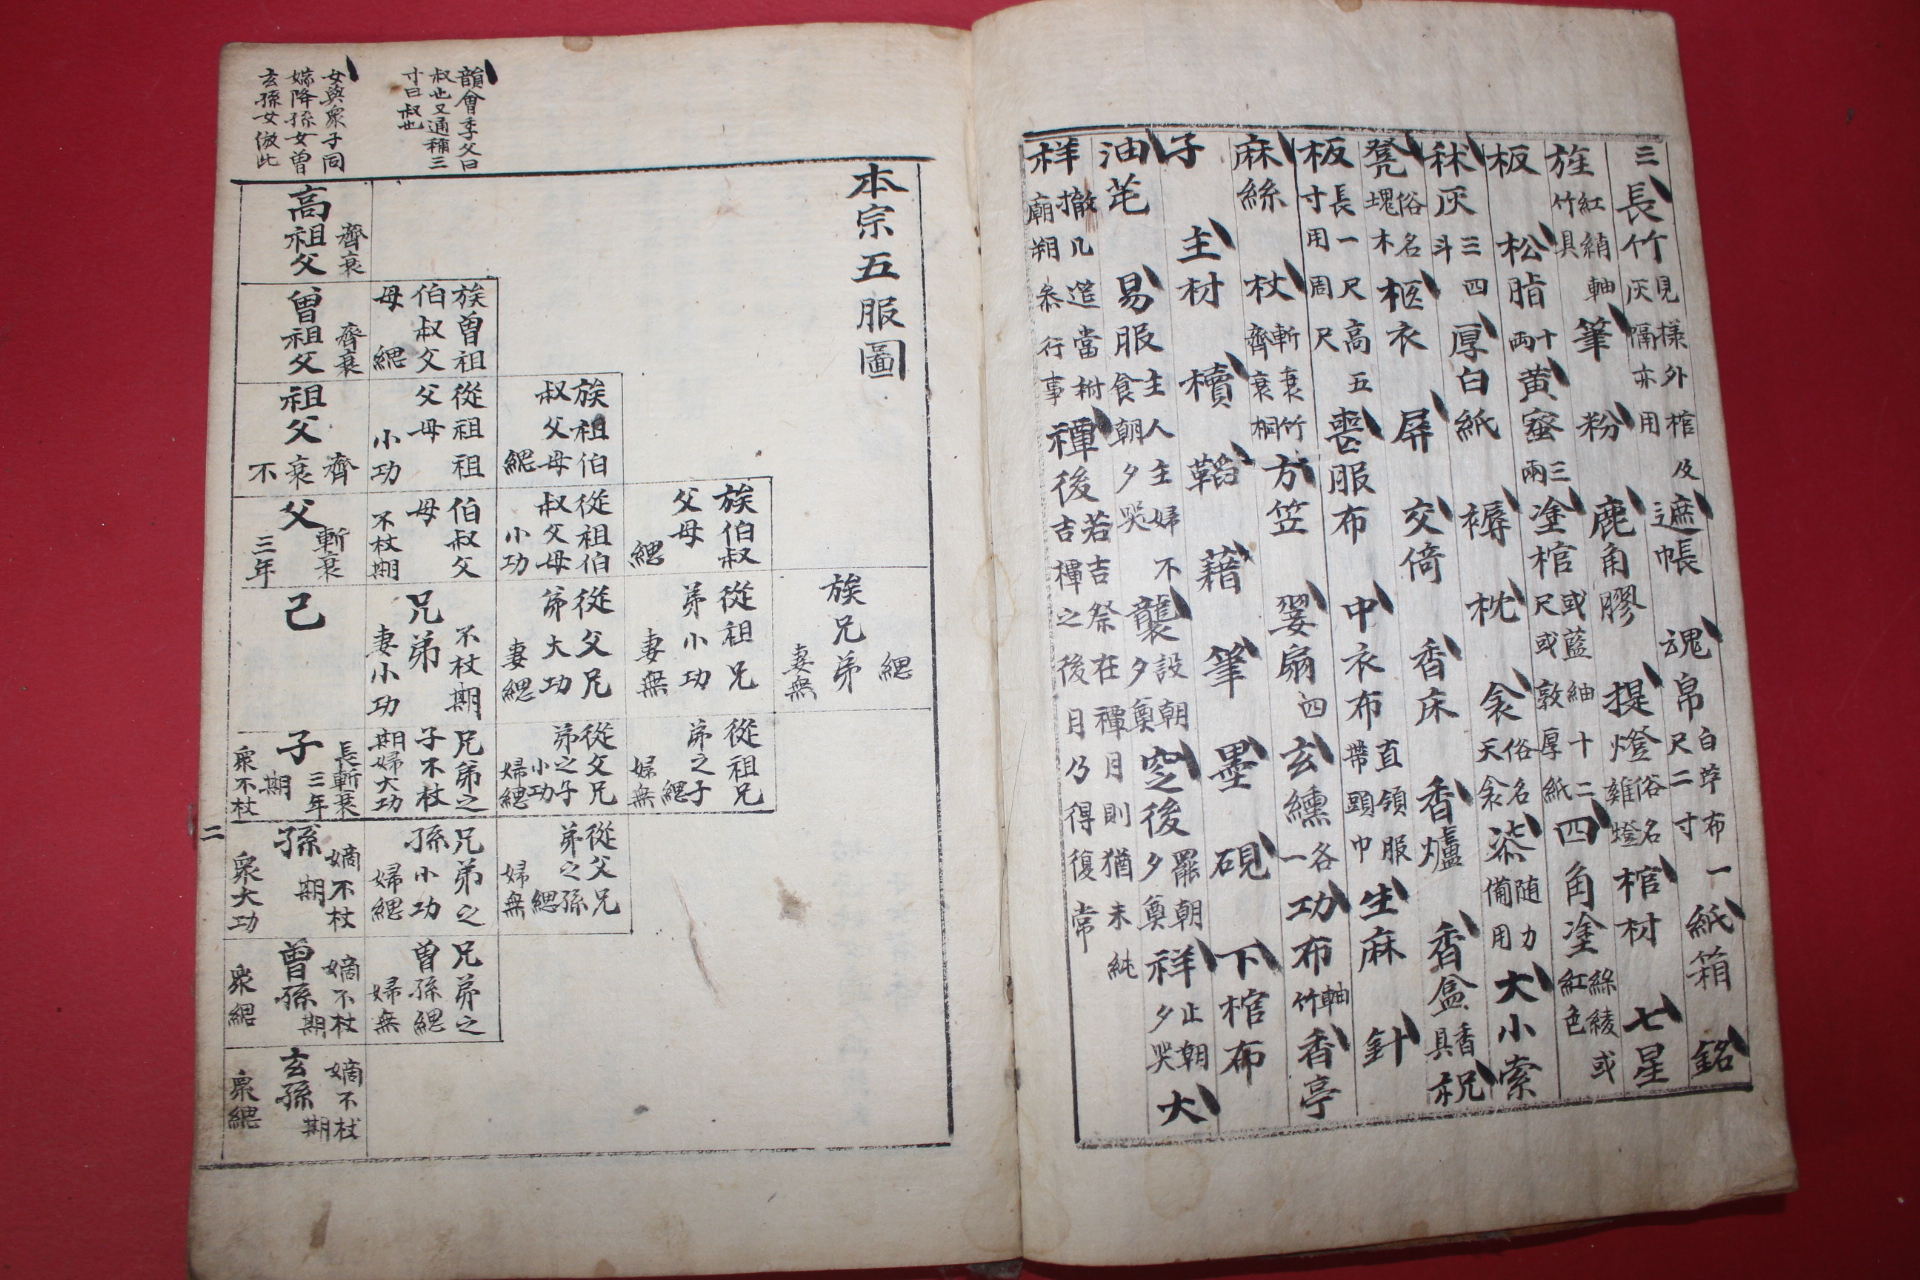 三長竹見樣外棺及灰隔亦用遮帳魂帛白苧布一尺二寸紙箱銘
旌紅綃軸竹具筆粉鹿角膠提燈俗名雜燈棺材七星
板松脂十兩黃蜜三兩塗棺或藍紬十二尺或敦厚紙四角塗綵綾或紅色
秫灰三四斗厚白紙褥枕衾俗名天衾柒随力備用大小索
凳俗名塊木柩衣屏交倚香床香爐香盒香具祝
板長一尺高五寸用周尺喪服布中衣布直領服帶頭巾生麻針
麻絲杖斬衰竹齊衰桐方笠翣扇四玄纁各一功布軸竹香亭
子主材櫝韜藉筆墨硯下棺布
油芚易服主人主婦不食朝夕哭襲設朝夕奠窆後罷朝夕奠祥止朝夕哭大
祥撤几筵當祔廟朔參行事禫後若吉祭在禫月則猶未純吉禫之後月乃得復常
韻會季父曰
叔也又通稱三
寸曰叔也
女與衆子同
嫁降孫女曾
玄孫女倣此
本宗五服圖
高祖父 齊衰
族曾祖伯叔父母 緦
曾祖父 齊衰
族祖伯叔父母 緦
從祖祖父母 小功
祖父 齊衰不
族伯叔父母 緦
從祖伯叔父母 小功
伯叔父母 不杖期
父 斬衰三年
族兄弟 緦 妻無
從祖兄弟小功 妻無
從父兄弟大功 妻緦
兄弟 不杖期 妻小功
己
從祖兄弟之子緦 婦無
從父兄弟之子小功 婦緦
兄弟之子不杖期婦大功
子 長斬衰三年 期 衆不杖
從父兄弟之孫緦 婦無
兄弟之孫小功 婦緦
孫 嫡不杖期 衆大功
兄弟之曾孫緦 婦無
曾孫 嫡不杖期 衆緦
玄孫 嫡不杖期 衆緦
二